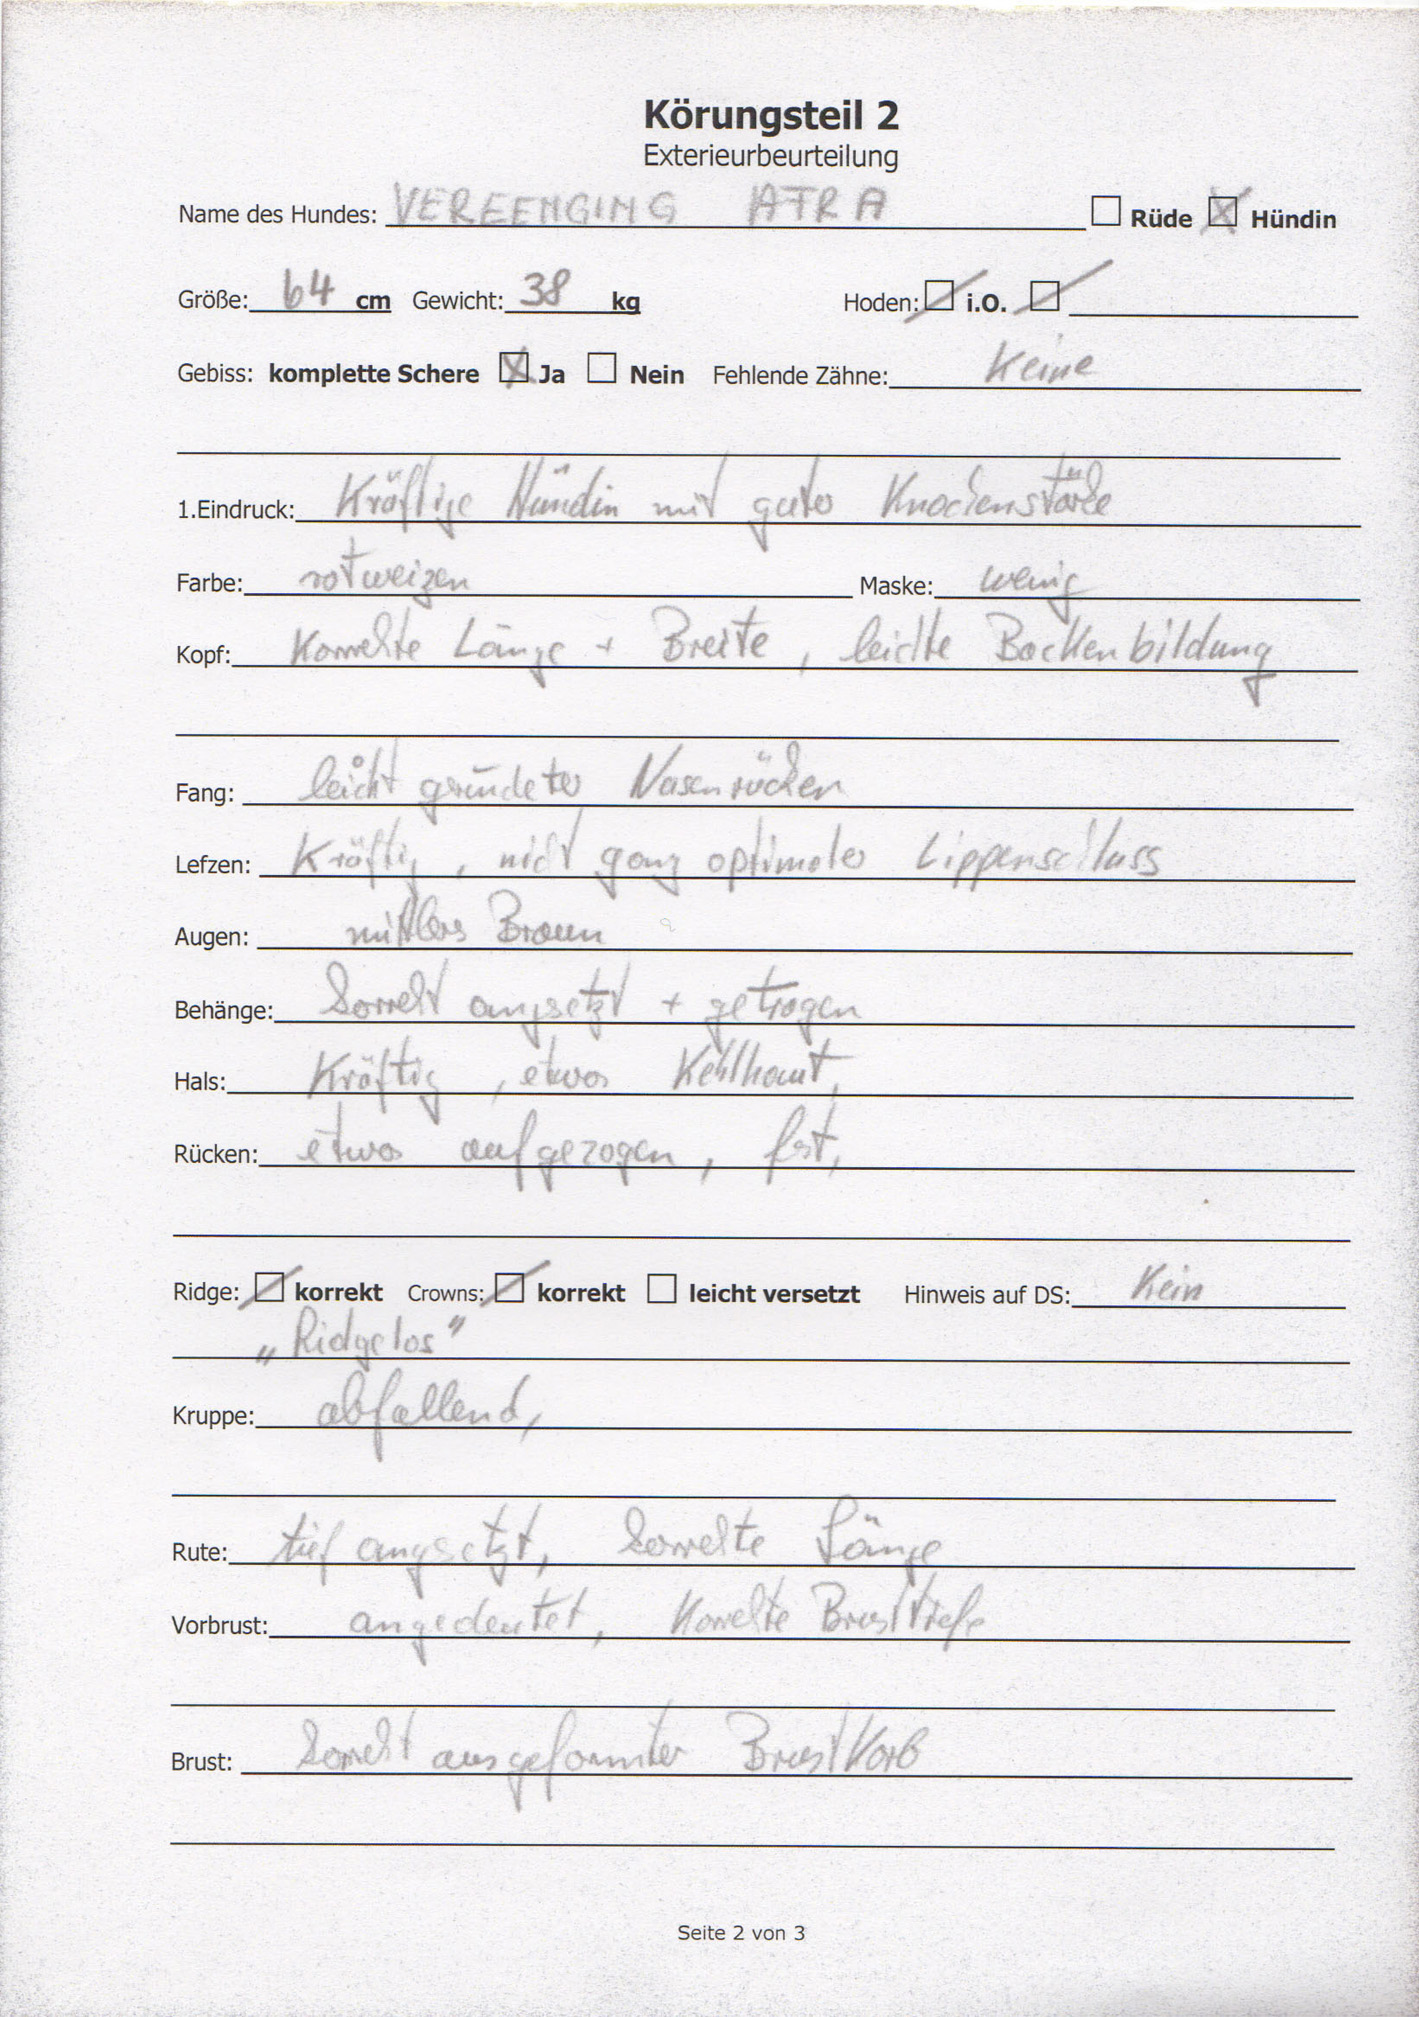 Körungsteil 2
Exterieurbeurteilung
Name des Hundes: VEREENGING ATRA Rüde Hündin
Größe: 64 cm Gewicht: 38 kg Hoden: i.O.
Gebiss: komplette Schere Ja Nein Fehlende Zähne: Keine
1.Eindruck: Kräftige Hündin mit guter Knochenstärke
Farbe: rotweizen Maske: wenig
Kopf: Korrekte Länge + Breite, leichte Backenbildung
Fang: leicht Nasenrücken
Lefzen: Kräftig, nicht ganz optimaler Lippenschluss
Augen: mittleres Braun
Behänge: korrekt angesetzt + getragen
Hals: Kräftig, etwas Kehlhaut,
Rücken: etwas aufgezogen, fest,
Ridge: korrekt Crowns: korrekt leicht versetzt Hinweis auf DS: Kein
„Ridgelos"
Kruppe: abfallend,
Rute: tief angesetzt, korrekte Länge
Vorbrust: angedeutet, Korrekte Brusttiefe
Brust: korrekt ausgeformter Brustkorb
Seite 2 von 3